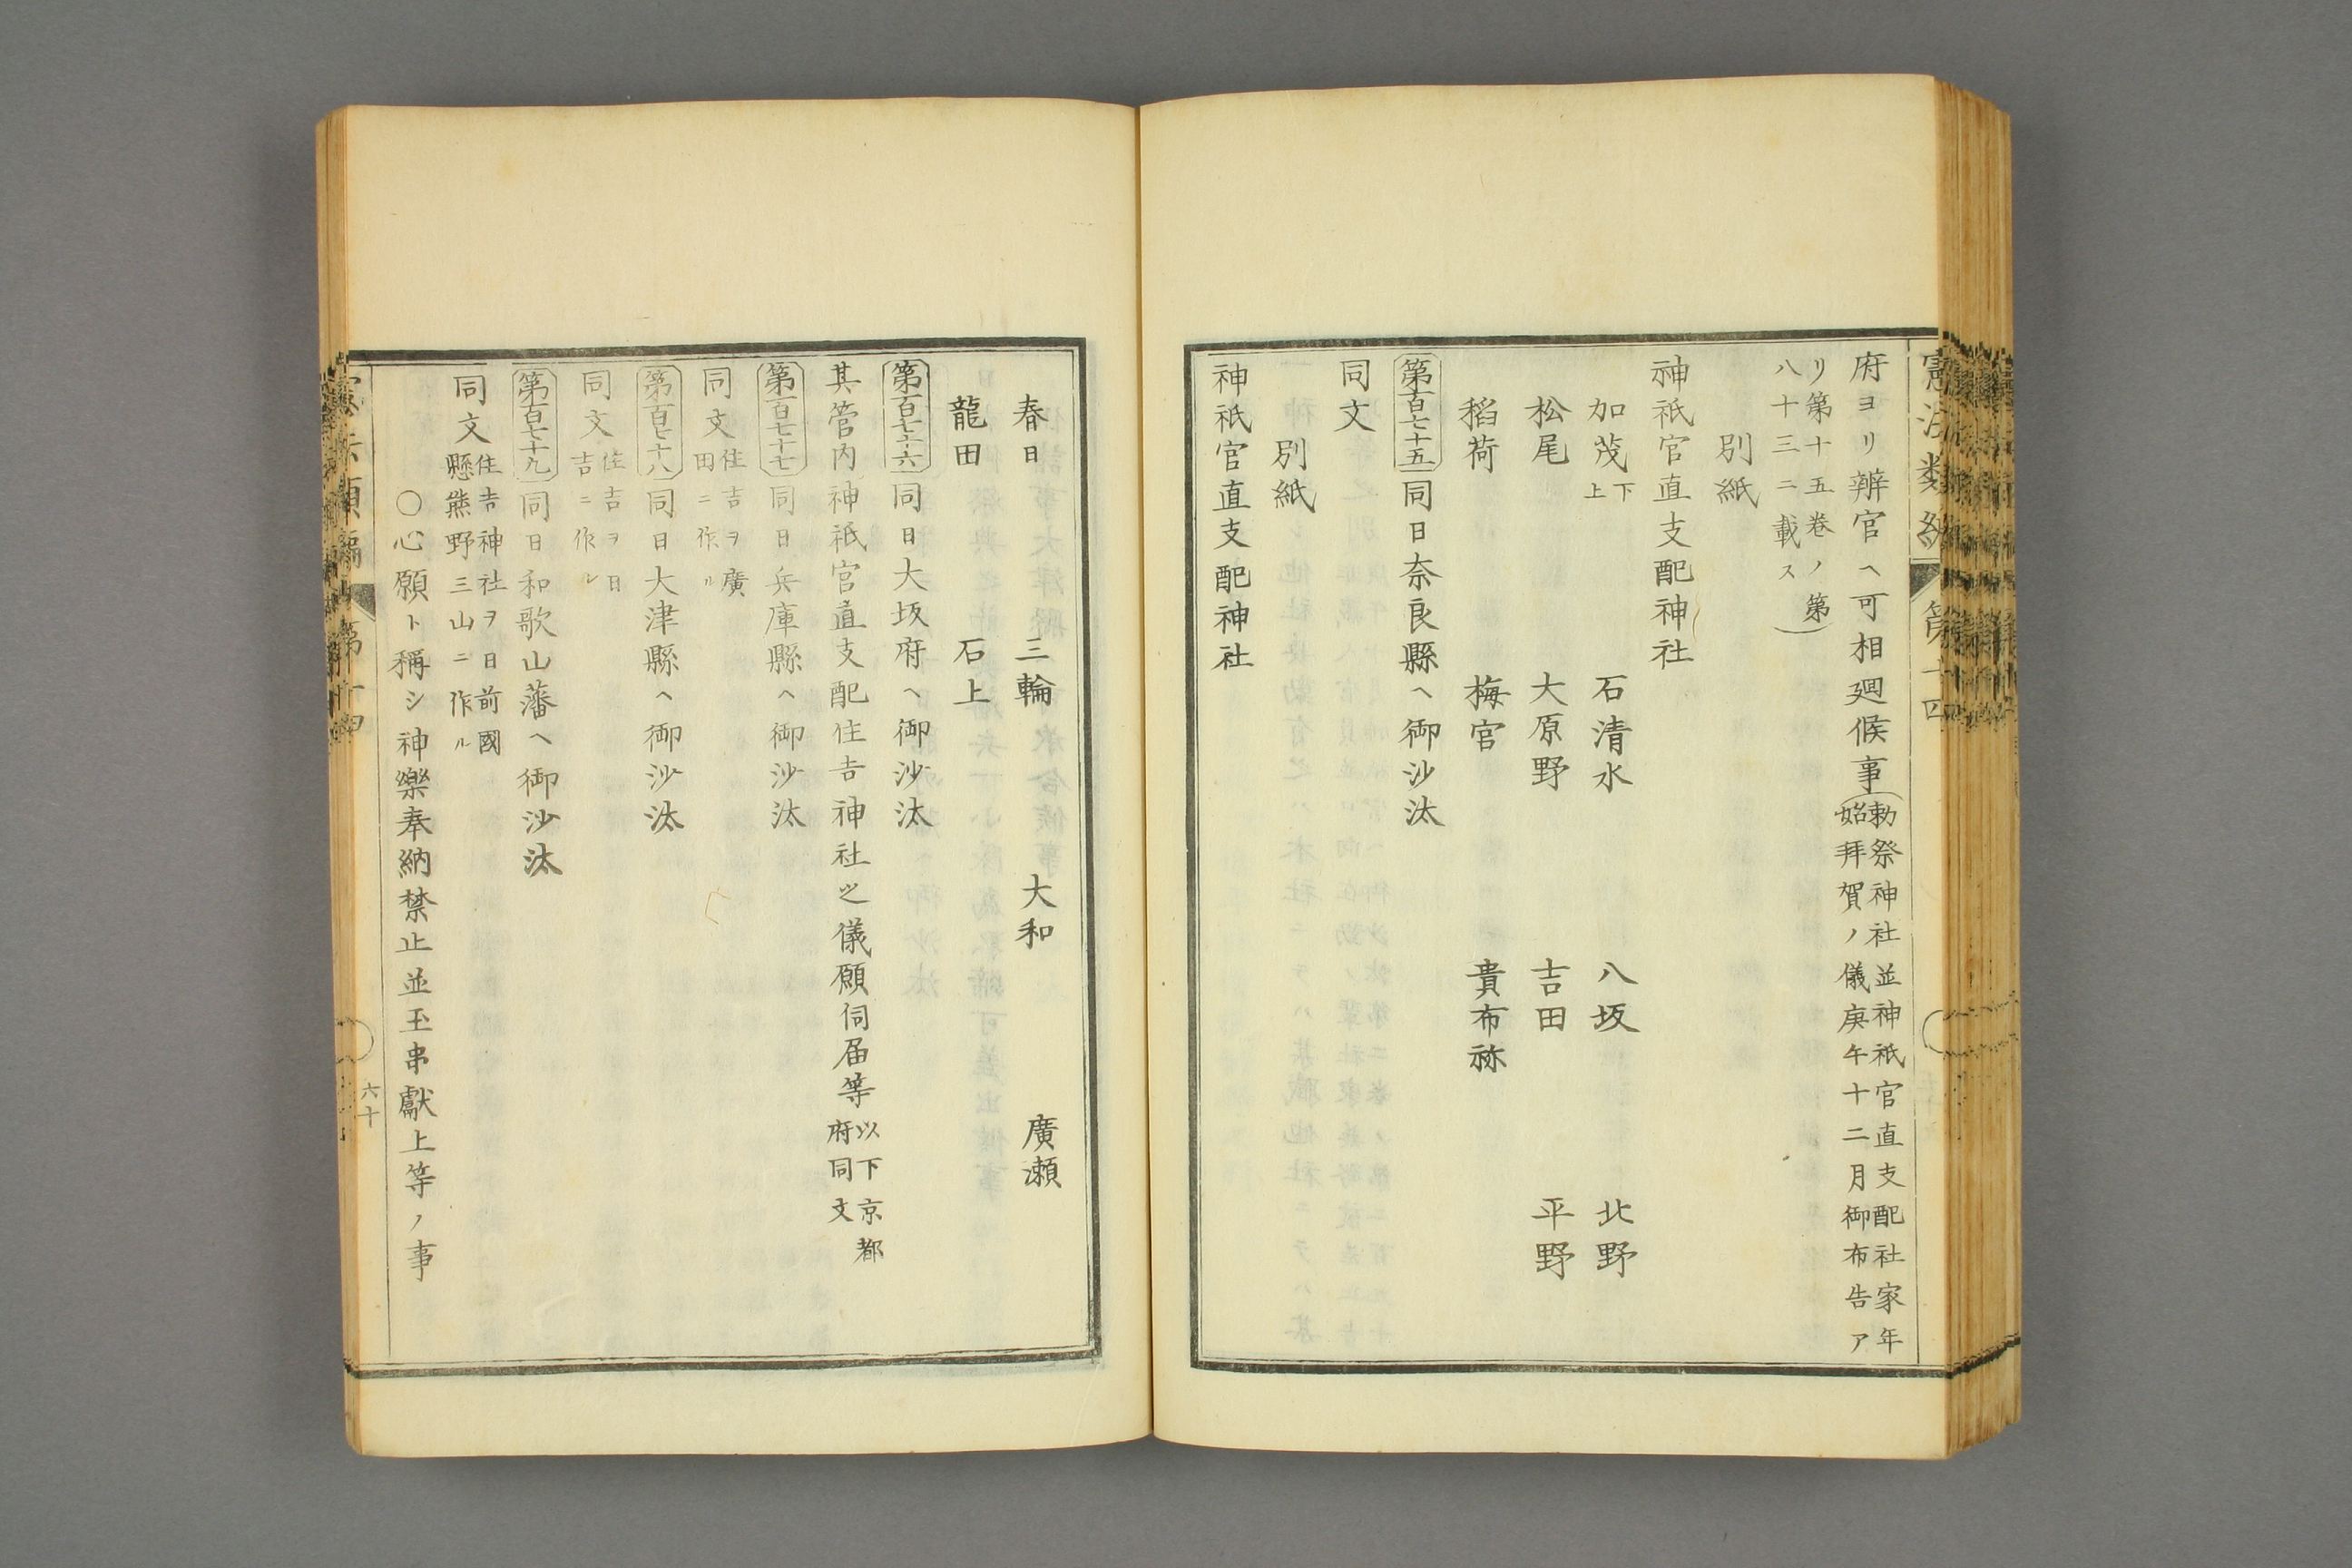 府ヨリ辨官ヘ可相廻候事(勅祭神社並神祇官直支配社家年
始拜賀ノ儀庚午十二月御布告ア
リ第十五卷ノ第
八十三ニ載ス)
別紙
神祇官直支配神社
加茂下上 石清水 八坂 北野
松尾 大原野 吉田 平野
稻荷 梅宮 貴布祢
第百七十五 同日奈良縣ヘ御沙汰
同文
別紙
神祇官直支配神社
春日 三輪 大和 廣瀬
龍田 石上
第百七十六 同日大坂府ヘ御沙汰
其管内神祇官直支配住吉神社之儀願伺届等以下京都
府同文
第百七十七 同日兵庫縣ヘ御沙汰
同文住吉ヲ廣
田ニ作ル
第百七十八 同日大津縣ヘ御沙汰
同文住吉ヲ日
吉ニ作ル
第百七十九 同日和歌山藩ヘ御沙汰
同文住吉神社ヲ日前國
懸熊野三山ニ作ル
○心願ト稱シ神樂奉納禁止並玉串獻上等ノ事
憲法類編 第十四
六十